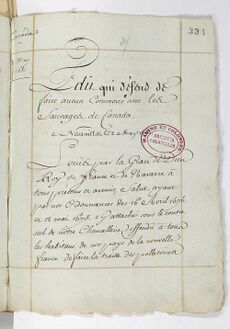 331
Canada
Edit qui défend de
faire aucun Commerce avec les
Sauvages de Canada.
a Versailles le May
MARINE ET COLONIES
ARCHIVES
COLONIALES
Louis par la Grace de Dieu
Roy de france et de Navarre a
tous presens et avenir, Salut, ayant
par nos Ordonnances des 16 Avril 1676.
et 12 may 1678. cy attachées sous le contre
scel de notre Chancellerie, deffendu a tous
les habitans de nos pays de la nouvelle
france de faire la traitte des pelleteries